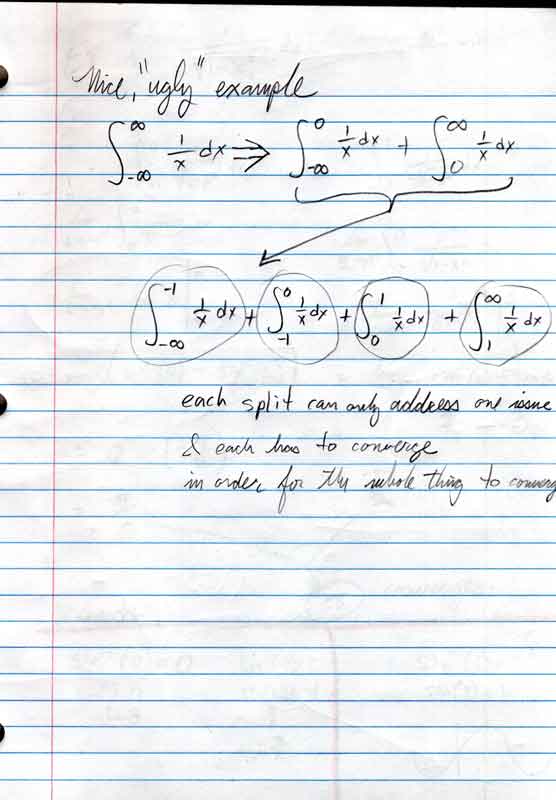 Nice, "ugly" example
∫_{-∞}^{∞} 1/x dx ⇒ ∫_{-∞}^{0} 1/x dx + ∫_{0}^{∞} 1/x dx
∫_{-∞}^{-1} 1/x dx + ∫_{-1}^{0} 1/x dx + ∫_{0}^{1} 1/x dx + ∫_{1}^{∞} 1/x dx
each split can only address one issue
& each has to converge
in order for the whole thing to converg